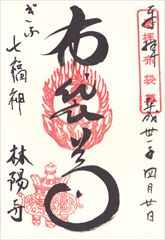 奉拝
平成廿一年四月廿日
布袋尊
ぎふ
七福神
林陽寺